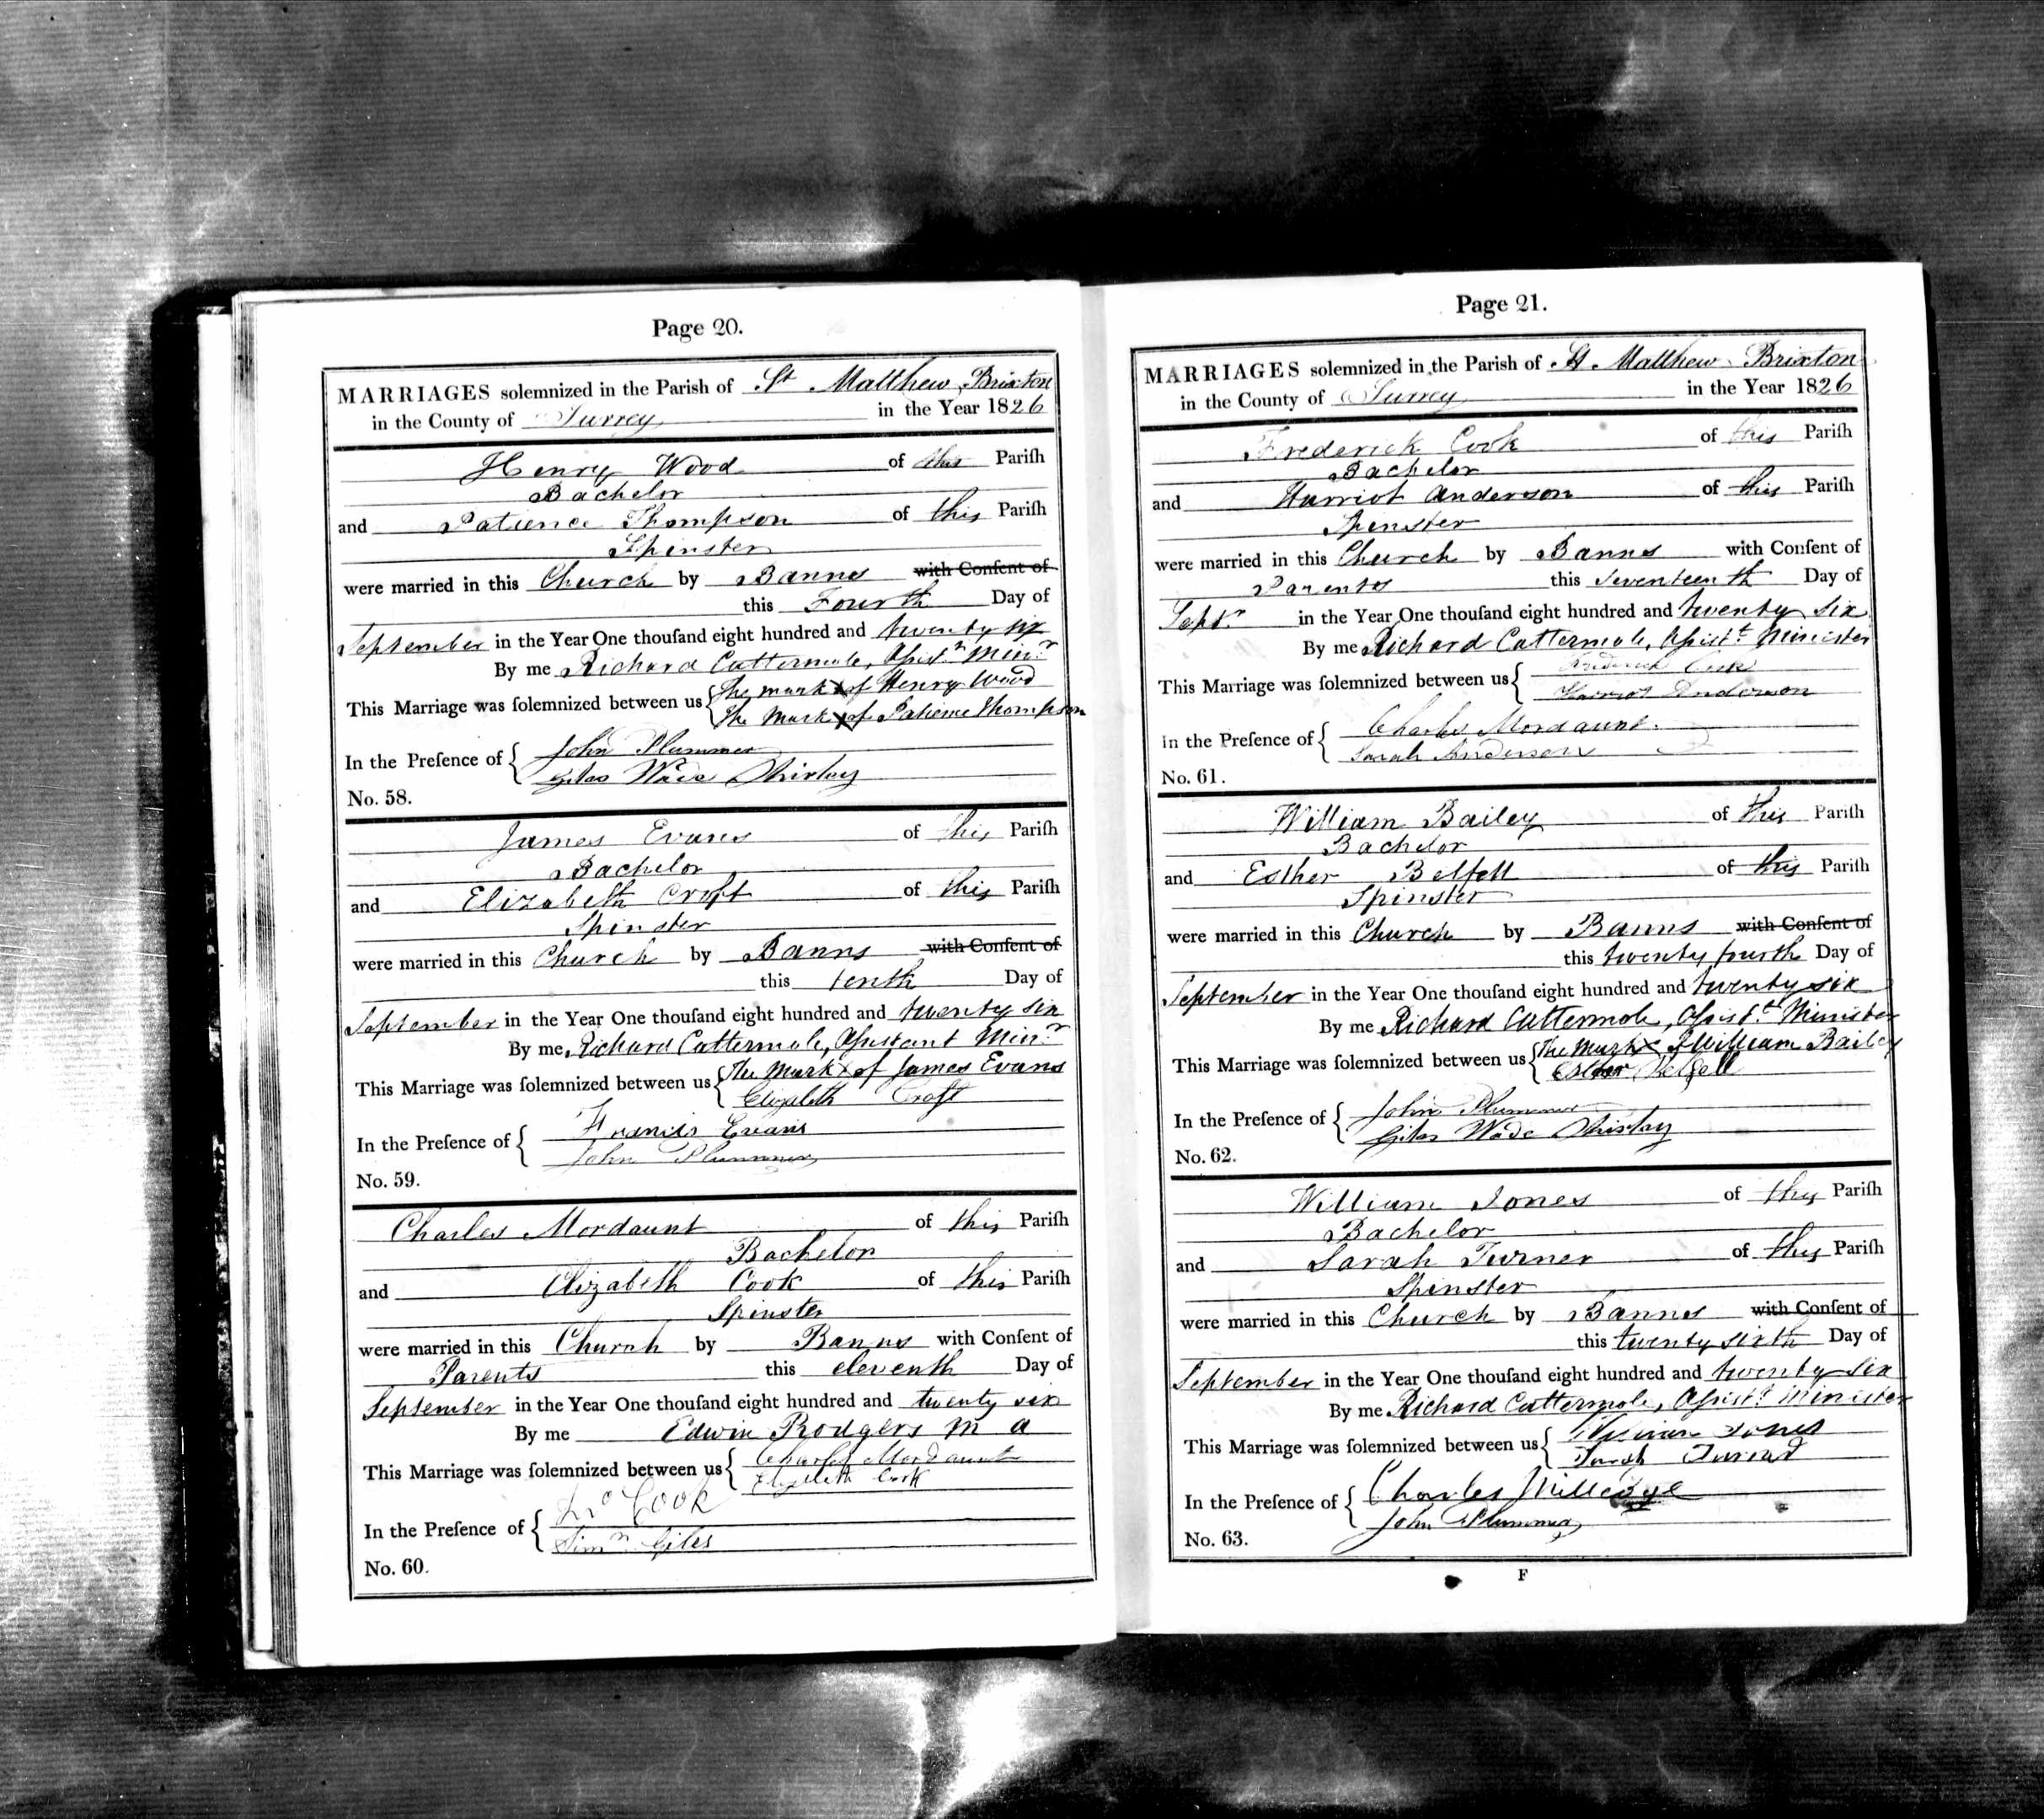 Page 20.
MARRIAGES solemnized in the Parish of St Matthew, Brixton
in the County of Surrey in the Year 1826
Henry Wood of this Pariſh
Bachelor
and Patience Thompson of this Pariſh
Spinster
were married in this Church by Banns with Conſent of
this Fourth Day of
September in the Year One thouſand eight hundred and twenty six
By me Richard Cattermole, Aſsist.t Min.r
This Marriage was ſolemnized between us { The mark X of Henry Wood
The Mark X of Patience Thompson
In the Preſence of { John Plummer
Giles Wade Shirley
No. 58.
James Evans of this Pariſh
Bachelor
and Elizabeth Croft of this Pariſh
Spinster
were married in this Church by Banns with Conſent of
this tenth Day of
September in the Year One thouſand eight hundred and twenty six
By me Richard Cattermole, Aſsistant Min.r
This Marriage was ſolemnized between us { The Mark X of James Evans
Elizabeth Croft
In the Preſence of { Francis Evans
John Plummer
No. 59.
Charles Mordaunt of this Pariſh
Bachelor
and Elizabeth Cook of this Pariſh
Spinster
were married in this Church by Banns with Conſent of
Parents this eleventh Day of
September in the Year One thouſand eight hundred and twenty six
By me Edwin Rodgers M A
This Marriage was ſolemnized between us { Charles Mordaunt
Elizabeth Cook
In the Preſence of { Jno Cook
Simn Giles
No. 60.
Page 21.
MARRIAGES solemnized in the Parish of St Matthew Brixton
in the County of Surrey in the Year 1826
Frederick Cook of this Pariſh
Bachelor
and Harriot Anderson of this Pariſh
Spinster
were married in this Church by Banns with Conſent of
Parents this Seventeenth Day of
Septr in the Year One thouſand eight hundred and twenty six
By me Richard Cattermole, Aſsist.t Minister
This Marriage was ſolemnized between us { Frederick Cook
Harriot Anderson
In the Preſence of { Charles Mordaunt.
Sarah Anderson
No. 61.
William Bailey of this Pariſh
Bachelor
and Esther Belfell of this Pariſh
Spinster
were married in this Church by Banns with Conſent of
this twenty fourth Day of
September in the Year One thouſand eight hundred and twenty six
By me Richard Cattermole, Aſsist.t Minister
This Marriage was ſolemnized between us { The Mark X of William Bailey
Esther Belfell
In the Preſence of { John Plummer
Giles Wade Shirley
No. 62.
William Jones of this Pariſh
Bachelor
and Sarah Turner of this Pariſh
Spinster
were married in this Church by Banns with Conſent of
this twenty sixth Day of
September in the Year One thouſand eight hundred and twenty six
By me Richard Cattermole, Aſsist.t Minister
This Marriage was ſolemnized between us { William Jones
Sarah Turner
In the Preſence of { Charles
John Plummer
No. 63.
F